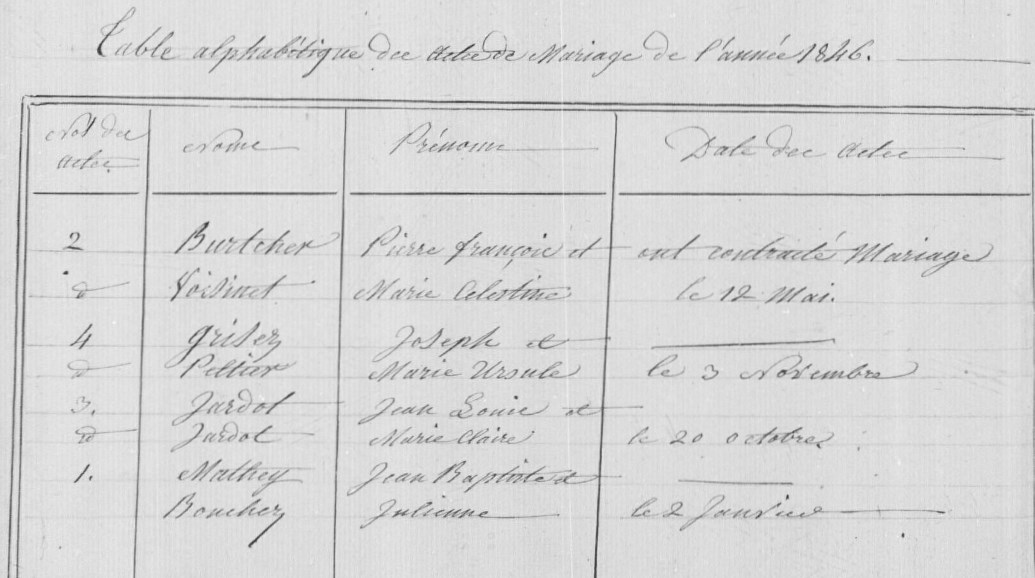 Table alphabétique des actes de Mariage de l'année 1846.
Nos des Noms Prénoms Date des Actes
actes
2 Burtcher Pierre françois et ont contracté Mariage
d Voisinet Marie Celestine le 12 Mai.
4 Grisez Joseph et
d Peltier Marie Ursule le 3 Novembre
3. Jardot Jean Louis et
d Jardot Marie Claire le 20 octobre
1. Mathey Jean Baptiste et
Bouchez Julienne le 2 Janvier